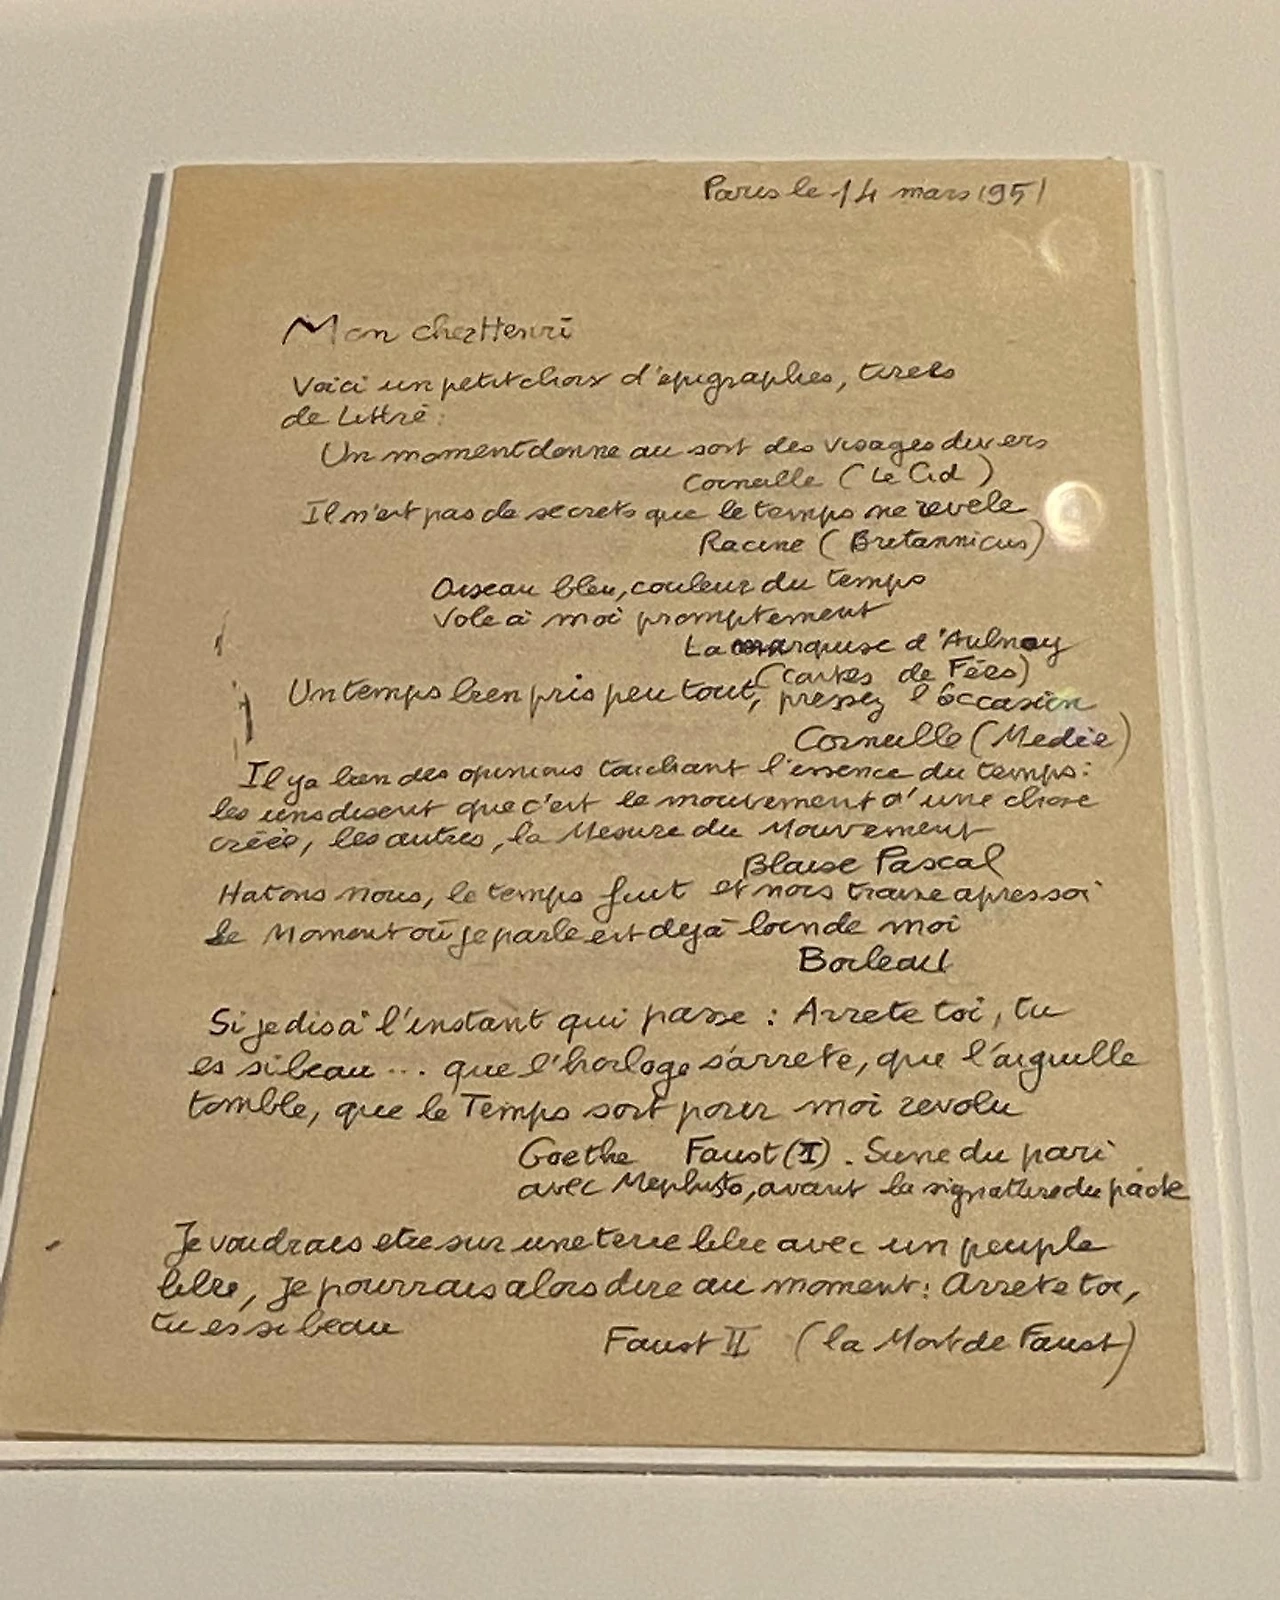 Paris le 14 mars 1951
Mon cher Henri
Voici un petit choix d'epigraphes, tirees
de Littré :
Un moment donne au sort des visages divers
Corneille ( Le Cid )
Il n'est pas de secrets que le temps ne revele
Racine ( Bretannicus)
Oiseau bleu, couleur du temps
Vole à moi promptement
La marquise d'Aulnoy
(Contes de Fées)
Un temps bien pris peu tout, pressez l'occasion
Corneille (Medée)
Il y a bien des opinions touchant l'essence du temps :
les uns disent que c'est le mouvement d'une chose
créée, les autres, la Mesure du Mouvement
Blaise Pascal
Hatons nous, le temps fuit et nous traine apres soi
Le Moment où je parle est dejà loin de moi
Boileau
Si je dis à l'instant qui passe : Arrete toi, tu
es si beau ... que l'horloge s'arrete, que l'aiguille
tombe, que le Temps soit pour moi revolu
Goethe Faust (I) . Scene du pari
avec Mephisto, avant la signature du pacte
Je voudrais etre sur une terre libre avec un peuple
libre, je pourrais alors dire au moment : Arrete toi,
tu es si beau
Faust II (la Mort de Faust)